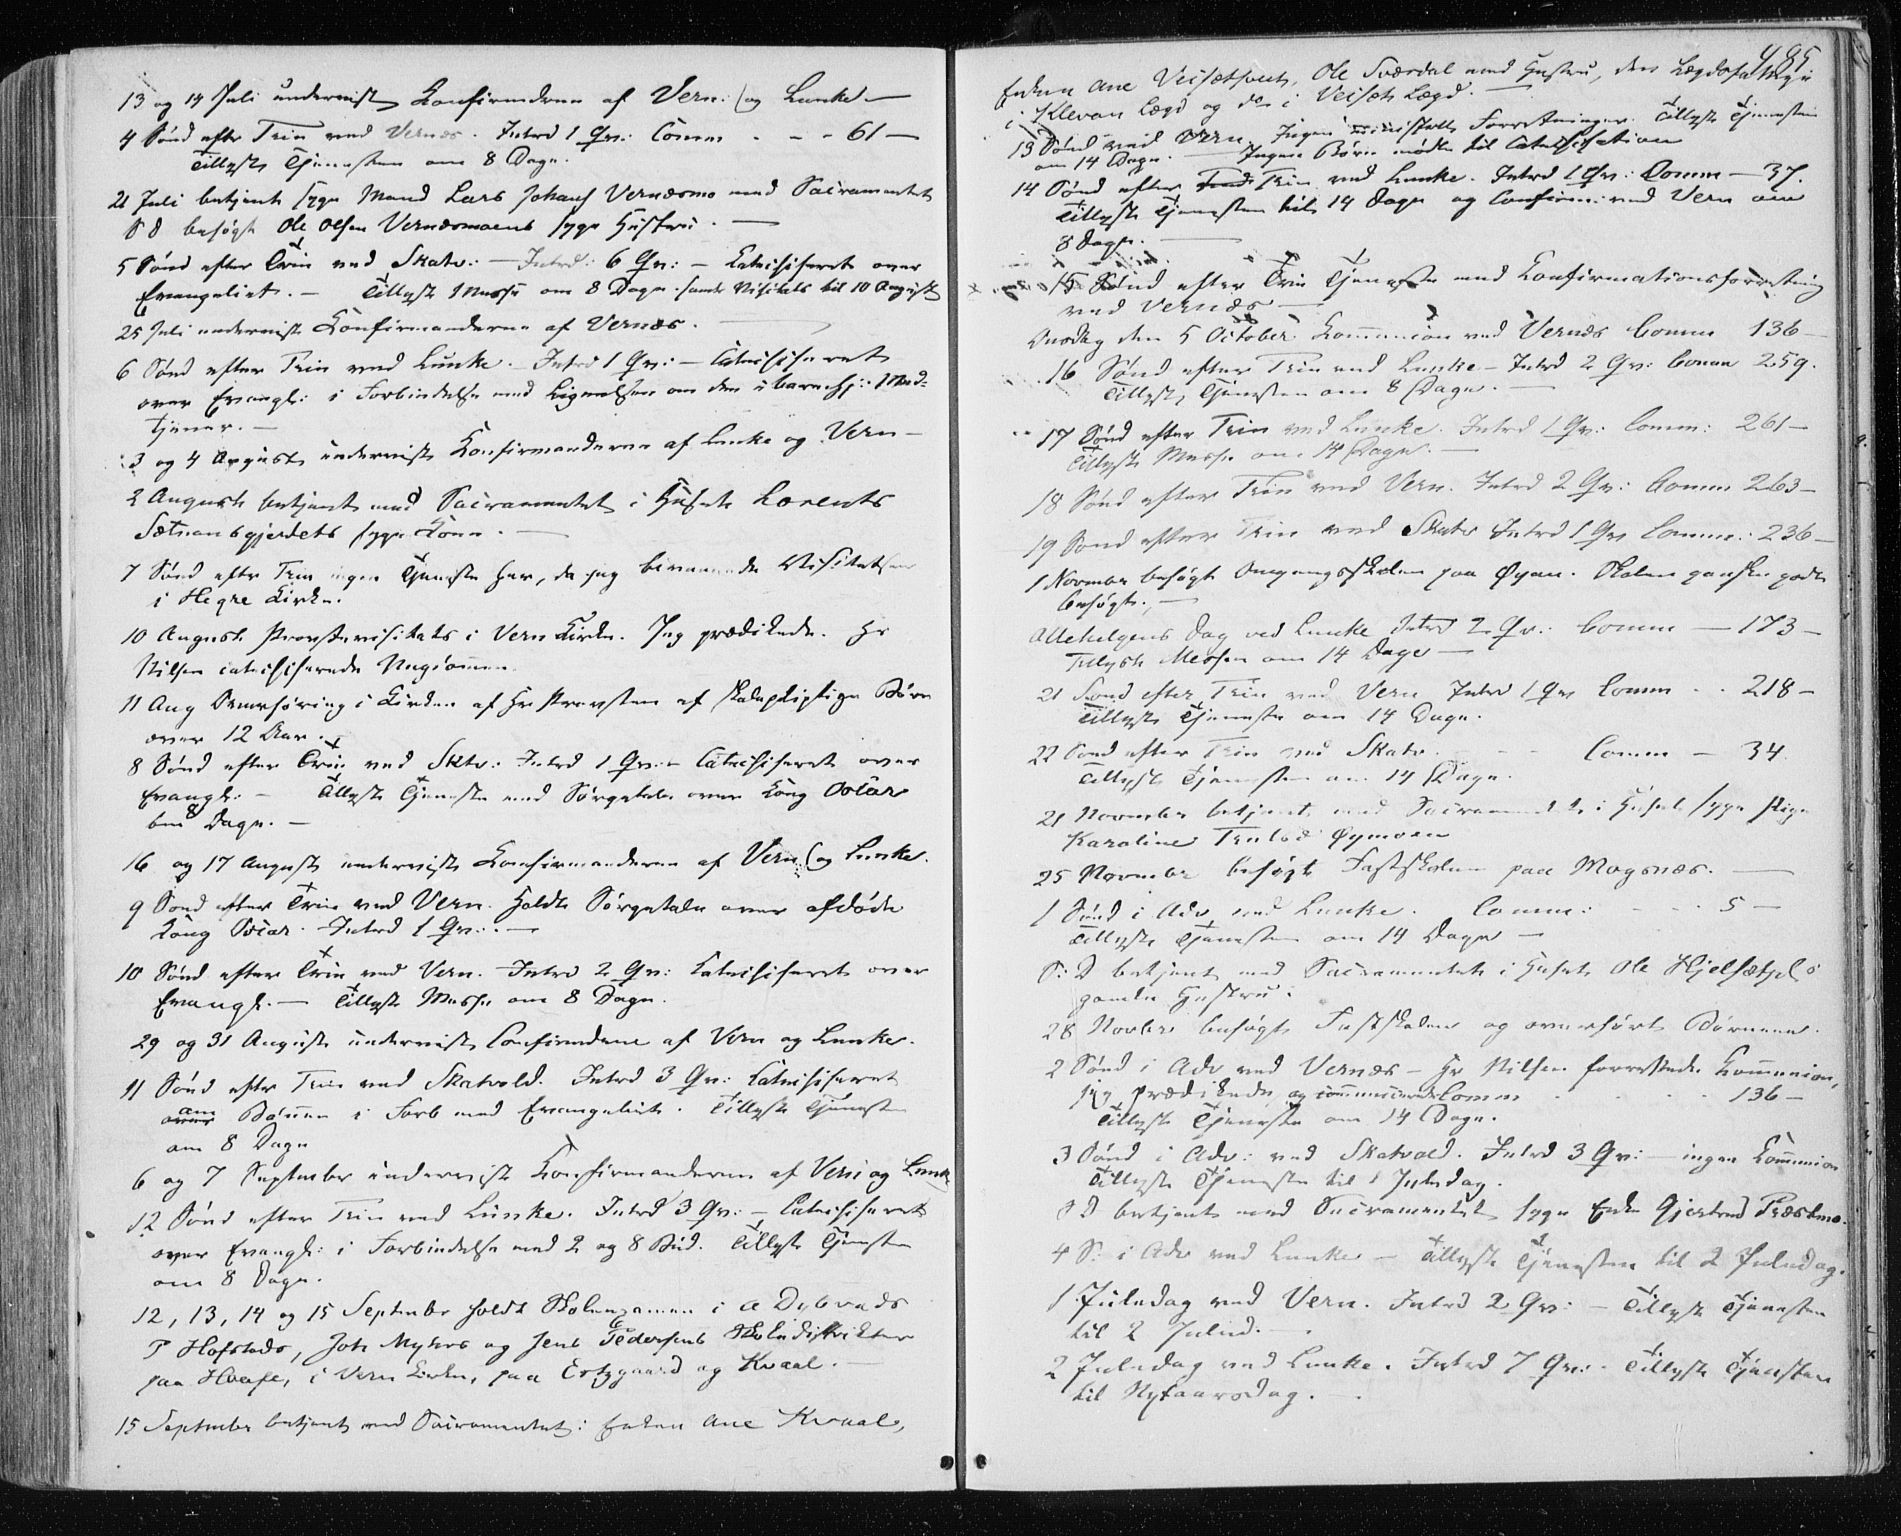 13 og 14 Juli underviist Konfirmdrne af Vern: og Lunke —
4 Sønd eftr Trin ved Vernæs. Intrd 1 Qv: Comm - - - 61 —
Tillyste Tjenesten om 8 Dage.
21 Juli betjent syge Mand Lars Johans Vernæsmo med Sacramentet
S D besøgt Ole Olsen Vernæsmoens syge Hustru. —
5 Sønd efter Trin ved Skatv: — Intrd: 6 Qv: — Katechiseret over
Evangeliet. — Tillyst Messe om 8 Dage samt Visitats til 10 August
25 Juli underviist Konfirmanderne af Vernæs. —
6 Sønd efter Trin ved Lunke. — Intrd 1 Qv: — Catechiseret
over Evangl: i Forbindelse med Lignelsen om den ubarmhj: Med-
tjener. —
3 og 4 August underviist Konfirmanderne af Lunke og Vern —
2 August betjent med Sacramentet i Huset Lorents
Sætnansgjerdets syge Kone. —
7 Sønd eftr Trin ingen Tjeneste her, da jeg bivaanede Visitatsen
i Hegre Kirke.
10 August Provstevisitats i Vern Kirke. Jeg prædikede. Hr
Nilsen catechiserede Ungdommen.
11 Aug Overhøring i Kirken af Hr Provsten af skolepligtige Børn
over 12 Aar.
8 Sønd efter Trin ved Sktv: Intrd 1 Qv: — Catechiseret over
Evangl: — Tillyste Tjeneste med Sørgetale over Kong Oscar
om 8 Dage. —
16 og 17 August underviist Konfirmanderne af Vern og Lunke.
9 Sønd efter Trin ved Vern. Holdt Sørgetale over afdøde
Kong Oscar. Intrd 1 Qv: —
10 Sønd efter Trin ved Vern. Intrd 2 Qv: Katechiseret over
Evangl. — Tillyst Messe om 8 Dage.
29 og 31 August underviist Confirmdene af Vern og Lunke.
11 Sønd eftr Trin ved Skatvold. Intrd 3 Qv: Catechiseret
om Bønnen i Forb med Evangeliet. Tillyste Tjenesten
om 8 Dage
6 og 7 September underviist Konfirmanderne af Vern og Lunke
12 Sønd efter Trin ved Lunke. Intrd 3 Qv: — Catechiseret
over Evangl: i Forbindelse med 2 og 8 Bud. Tillyst Tjenesten
om 8 Dage.
12, 13, 14 og 15 Septembr holdt Skoleexamen i A Dybvads
P Hofstads, Joh Myhrs og Jens Pedersens Skoledistrikter
paa i Vern Kirke, paa og Kvaal. —
15 September betjent med Sacramentet: Enken Ane Kvaal,
495
Enken Ane Ole Sværdal med Hustru, den
i Klevan Lægd og do i Veiseth Lægd. —
13 Sønd ved Vern. Ingen ministielle Forretninger. Tillyst Tjenesten
om 14 Dage. — Ingen Børn mødte til Catechisation
14 Sønd efter Trin ved Lunke. Intrd 1 Qv: Comm — 37.
Tillyst Tjenesten til 14 Dage og Confirm: ved Vern om
8 Dage. —
15 Sønd efter Trin Tjeneste med Konfirmationsforretning
ved Vernæs —
Onsdag den 5 October Kommunion ved Vernæs Comm 136 —
16 Sønd efter Trin ved Lunke — Intrd 2 Qv: Comm 259.
Tillyst Tjenesten om 8 Dage. —
17 Sønd efter Trin ved Lunke. Intrd 1 Qv: Comm: 261 —
Tillyst Messe om 14 Dage. —
18 Sønd efter Trin ved Vern. Intrd 2 Qv: Comm 263 —
19 Sønd efter Trin ved Skatv Intrd 1 Qv Comm: 236 —
1 Novmbr besøgt Omgangsskolen paa Øyan. Skolen ganske godt
besøgt. —
Allehelgens Dag ved Lunke Intrd 2 Qv: Comm — 173 —
Tillyst Messen om 14 Dage —
21 Sønd efter Trin ved Vern Intrd 1 Qv Comm - - 218 —
Tillyst Tjeneste om 14 Dage.
22 Sønd efter Trin ved Skatv. - - Comm — 34
Tillyst Tjenesten om 14 Dage.
21 Novmbr betjent med Sacramentet i Huset syge Pige
Karoline Øymoen
25 Novmbr besøgt Fastskolen paa Mogsnæs. —
1 Sønd i Adv ved Lunke. Comm: - - - 5 —
Tillyst Tjenesten om 14 Dage —
S: D betjent med Sacramentet i Huset Ole
gamle Hustru.
28 Novbr besøgt Fastskolen og overhørt Børnene.
2 Sønd i Adv ved Vernæs — Hr Nilsen forrettede Kommunion,
jeg prædikede og communicerede Comm - - - 136 —
Tillyst Tjeneste om 14 Dage.
3 Sønd i Adv: ved Skatvold. Intrd 3 Qv: — ingen Kommunion
Tillyste Tjeneste til 1 Juledag.
S D betjent med Sacramentet syge Enke Gjertrud Præstmo.
4 S: i Adv ved Lunke — Tillyst Tjenesten til 2 Juledag.
1 Juledag ved Vern. Intrd 2 Qv: — Tillyst Tjenesten
til 2 Juled. —
2 Juledag ved Lunke. Intrd 7 Qv: - Tillyst Tjenesten
til Nytaarsdag. —